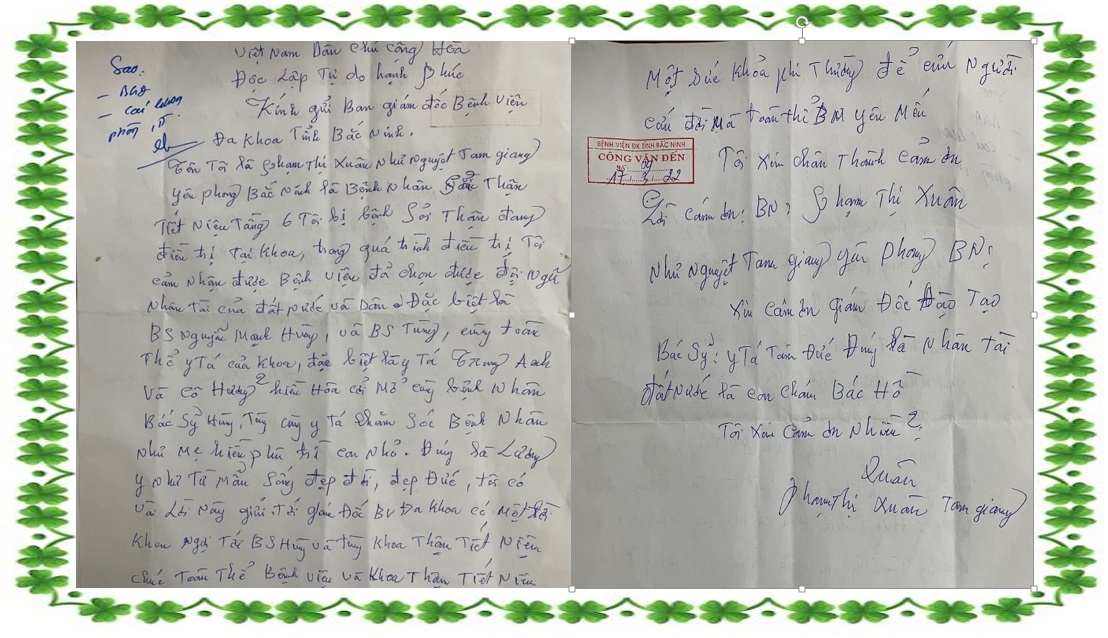 Việt Nam Dân chủ cộng Hòa
Độc Lập Tự do hạnh Phúc
Kính gửi Ban giám đốc Bệnh viện
Đa Khoa Tỉnh Bắc Ninh.
Sao:
- BGĐ
phòng
Tên Tôi là Phạm Thị Xuân Như Nguyệt Tam giang
yên phong Bắc Ninh là Bệnh Nhân Thận
Tiết Niệu Tầng 6 Tôi bị bệnh Sỏi Thận đang
điều trị Tại Khoa, trong quá trình điều trị Tôi
cảm nhận được Bệnh viện đã chọn được đội Ngũ
Nhân Tài của đất nước và Dân Đặc biệt là
BS Nguyễn Mạnh Hùng, và BS Tùng, cùng toàn
Thể y Tá của Khoa, đặc biệt là y Tá Trung Anh
và cô Hương hiền Hòa cởi Mở cùng bệnh Nhân
Bác Sỹ Hùng, Tùng cùng y Tá chăm Sóc Bệnh Nhân
Như Mẹ hiền con Nhỏ. Đúng là Lương
y Như Từ Mẫu Sống đẹp đời, đẹp Đức, tôi có
vài Lời Này gửi Tới giám Đốc BV Đa Khoa có Một Lời
Khen Ngợi Tới BS Hùng và Tùng Khoa Thận Tiết Niệu
chúc Toàn Thể Bệnh viện và Khoa Thận Tiết Niệu
Một Sức Khỏe phi Thường để cứu Người
cứu đời Mà toàn thể BN yêu Mến
BỆNH VIỆN ĐK TỈNH BẮC NINH
CÔNG VĂN ĐẾN
17 3 22
Tôi Xin chân Thành cảm ơn
Lời cảm ơn: BN: Phạm Thị Xuân
Như Nguyệt Tam giang yên Phong BN:
Xin cảm ơn giám Đốc Đào Tạo
Bác Sỹ: y Tá Tâm Đức Đúng là Nhân Tài
đất Nước là con cháu Bác Hồ
Tôi Xin Cảm ơn Nhiều
Xuân
Phạm Thị Xuân Tam giang